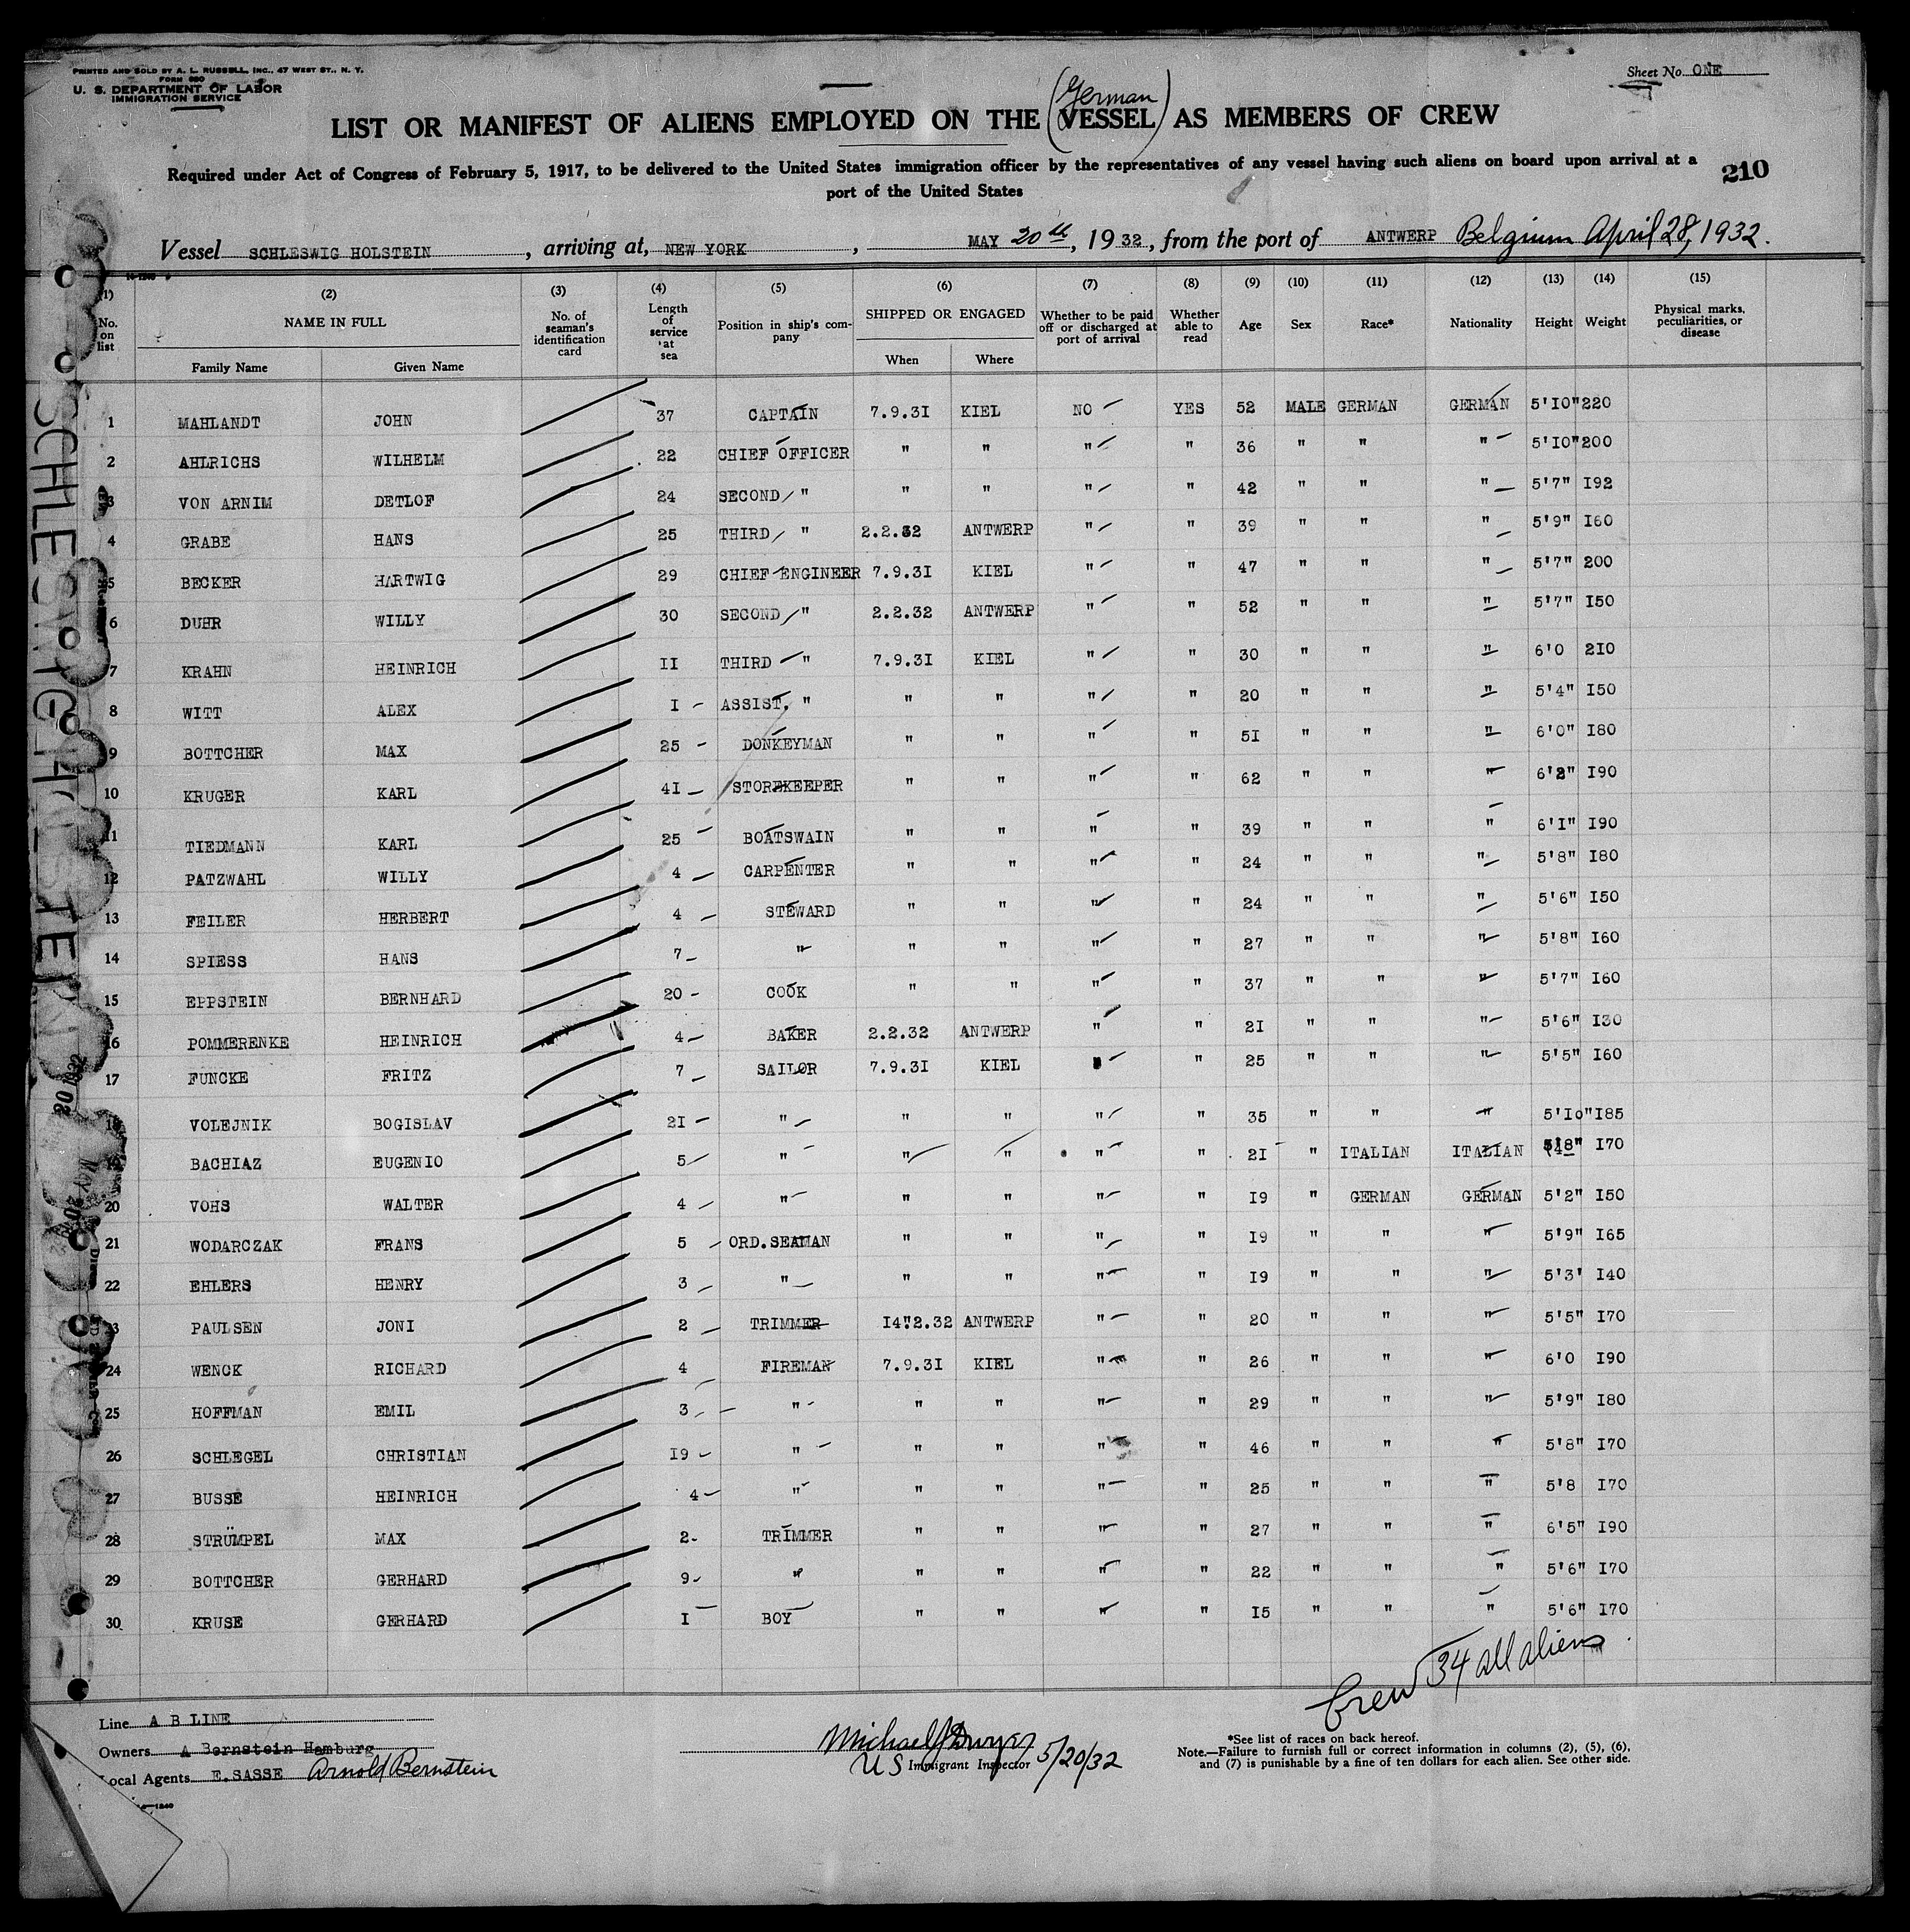 PRINTED AND SOLD BY A. L. RUSSELL, INC., 47 WEST ST., N. Y.
FORM 680
U. S. DEPARTMENT OF LABOR
IMMIGRATION SERVICE
Sheet No. ONE
(German
LIST OR MANIFEST OF ALIENS EMPLOYED ON THE VESSEL) AS MEMBERS OF CREW
Required under Act of Congress of February 5, 1917, to be delivered to the United States immigration officer by the representatives of any vessel having such aliens on board upon arrival at a
port of the United States
210
Vessel SCHLESWIG HOLSTEIN, arriving at, NEW YORK, MAY 20th, 1932, from the port of ANTWERP Belgium April 28, 1932.
(1) (2) (3) (4) (5) (6) (7) (8) (9) (10) (11) (12) (13) (14) (15)
No. on list NAME IN FULL Family Name Given Name No. of seaman's identification card Length of service at sea Position in ship's company SHIPPED OR ENGAGED When Where Whether to be paid off or discharged at port of arrival Whether able to read Age Sex Race* Nationality Height Weight Physical marks, peculiarities, or disease
1 MAHLANDT JOHN 37 CAPTAIN 7.9.3I KIEL NO YES 52 MALE GERMAN GERMAN 5'IO" 220
2 AHLRICHS WILHELM 22 CHIEF OFFICER " " " " 36 " " " 5'IO" 200
3 VON ARNIM DETLOF 24 SECOND " " " " " 42 " " " 5'7" I92
4 GRABE HANS 25 THIRD " 2.2.32 ANTWERP " " 39 " " " 5'9" I60
5 BECKER HARTWIG 29 CHIEF ENGINEER 7.9.3I KIEL " " 47 " " " 5'7" 200
6 DUHR WILLY 30 SECOND " 2.2.32 ANTWERP " " 52 " " " 5'7" I50
7 KRAHN HEINRICH II THIRD " 7.9.3I KIEL " " 30 " " " 6'0 2IO
8 WITT ALEX I ASSIST. " " " " " 20 " " " 5'4" I50
9 BOTTCHER MAX 25 DONKEYMAN " " " " 5I " " " 6'0" I80
10 KRUGER KARL 4I STOREKEEPER " " " " 62 " " " 6'2" I90
11 TIEDMANN KARL 25 BOATSWAIN " " " " 39 " " " 6'I" I90
12 PATZWAHL WILLY 4 CARPENTER " " " " 24 " " " 5'8" I80
13 FEILER HERBERT 4 STEWARD " " " " 24 " " " 5'6" I50
14 SPIESS HANS 7 " " " " " 27 " " " 5'8" I60
15 EPPSTEIN BERNHARD 20 COOK " " " " 37 " " " 5'7" I60
16 POMMERENKE HEINRICH 4 BAKER 2.2.32 ANTWERP " " 2I " " " 5'6" I30
17 FUNCKE FRITZ 7 SAILOR 7.9.3I KIEL " " 25 " " " 5'5" I60
18 VOLEJNIK BOGISLAV 2I " " " " " 35 " " " 5'Io" I85
19 BACHIAZ EUGENIO 5 " " " " " 2I " ITALIAN ITALIAN 5'8" I70
20 VOHS WALTER 4 " " " " " I9 " GERMAN GERMAN 5'2" I50
21 WODARCZAK FRANS 5 ORD.SEAMAN " " " " I9 " " " 5'9" I65
22 EHLERS HENRY 3 " " " " " I9 " " " 5'3' I40
23 PAULSEN JONI 2 TRIMMER I4".2.32 ANTWERP " " 20 " " " 5'5" I70
24 WENCK RICHARD 4 FIREMAN 7.9.3I KIEL " " 26 " " " 6'0 I90
25 HOFFMAN EMIL 3 " " " " " 29 " " " 5'9" I80
26 SCHLEGEL CHRISTIAN I9 " " " " " 46 " " " 5'8" I70
27 BUSSE HEINRICH 4 " " " " " 25 " " " 5'8 I70
28 STRÜMPEL MAX 2 TRIMMER " " " " 27 " " " 6'5" I90
29 BOTTCHER GERHARD 9 " " " " " 22 " " " 5'6" I70
30 KRUSE GERHARD I BOY " " " " I5 " " " 5'6" I70
Crew 34 all aliens
Line A B LINE
Owners A Bernstein Hamburg
Local Agents E.SASSE Arnold Bernstein
Michael J Dwyer
US Immigrant Inspector 5/20/32
*See list of races on back hereof.
Note.—Failure to furnish full or correct information in columns (2), (5), (6),
and (7) is punishable by a fine of ten dollars for each alien. See other side.